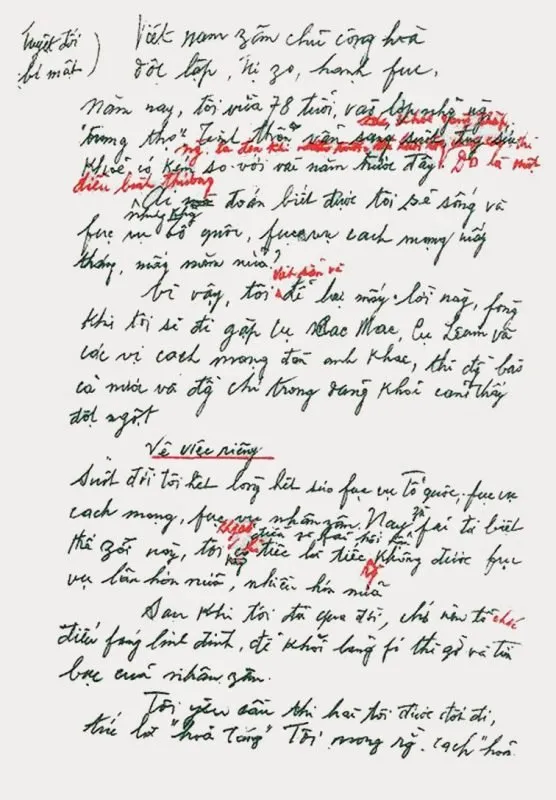 Tuyệt đối
bí mật )
Việt nam zân chủ cộng hoà
độc lập, tự zo, hạnh fúc,
Năm nay, tôi vừa 78 tuổi, vào lớp những ng
"trung thọ". Tinh thần
khoẻ có kém so với vài năm trước đây. Đó là một
điều bình thường
Ai mà đoán biết được tôi sẽ sống và
fục vụ tổ quốc, fục vụ cách mạng mấy
tháng, mấy năm nữa?
viết sẵn và
Vì vậy, tôi để lại mấy lời này, fòng
khi tôi sẽ đi gặp cụ Các Mác, Cụ Lênin và
các vị cách mạng đàn anh khác, thì đg bào
cả nước và đg chí trong đảng khỏi cảm thấy
đột ngột
Về việc riêng
Suốt đời tôi hết lòng hết sức fục vụ Tổ quốc, fục vụ
cách mạng, fục vụ nhân zân. Nay zù fải từ biệt
thế zới này, tôi k có điều gì fải hối hận
chỉ tiếc là tiếc rg không được fục
vụ lâu hơn nữa, nhiều hơn nữa
Sau khi tôi đã qua đời, chớ nên tổ chức
điếu fúng linh đình, để khỏi lãng fí thì giờ và tiền
bạc của nhân zân.
Tôi yêu cầu thi hài tôi được đốt đi,
tức là "hoả táng". Tôi mong rg. cách "hoả